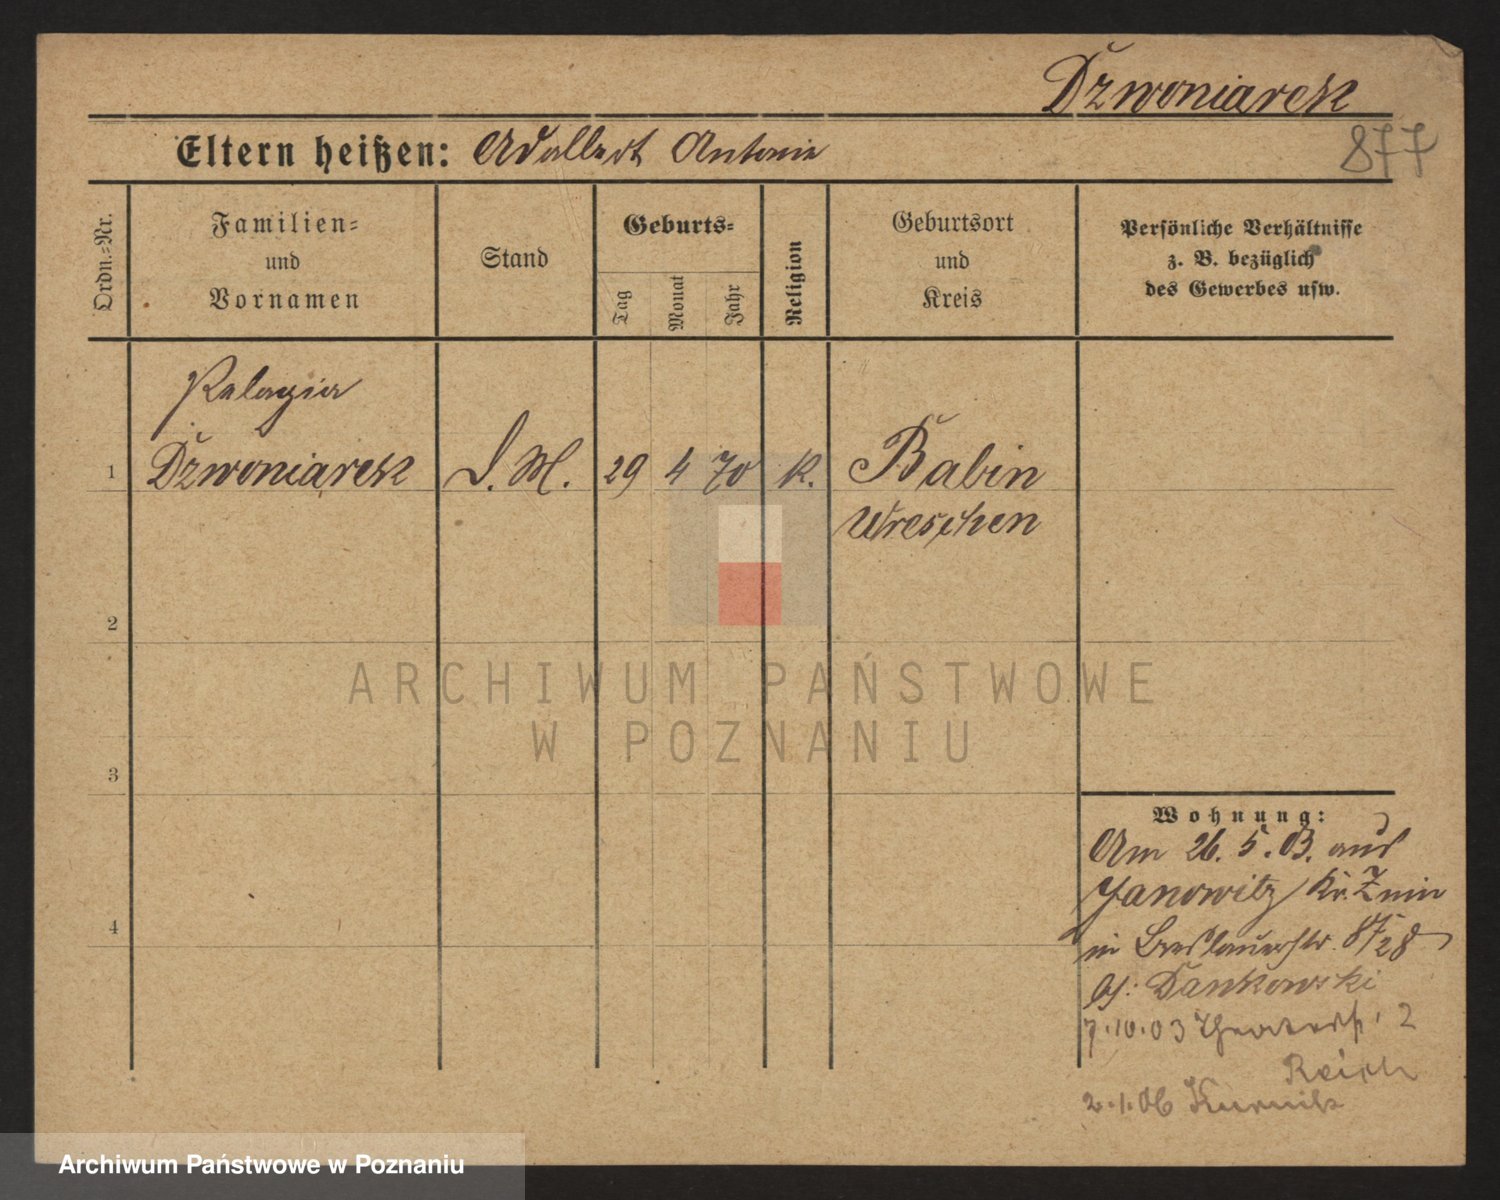 Dzwoniarek
877
Eltern heißen: Adalbert Antonie
Ordn.-Nr.
Familien-
und
Vornamen
Stand
Geburts-
Tag
Monat
Jahr
Religion
Geburtsort
und
Kreis
Persönliche Verhältnisse
z. B. bezüglich
des Gewerbes usw.
Pelagia
1 Dzwoniarek D. M. 29 4 70 K. Babin
Wreschen
2
ARCHIWUM PAŃSTWOWE
W POZNANIU
3
Wohnung:
Am 26. 5. 03. aus
Janowitz Kr. Znin
in Breslauerstr.
4
Dankowski
7.10.03 Theaterstr. 2
Reich
2.1.06 Kurnik
Archiwum Państwowe w Poznaniu